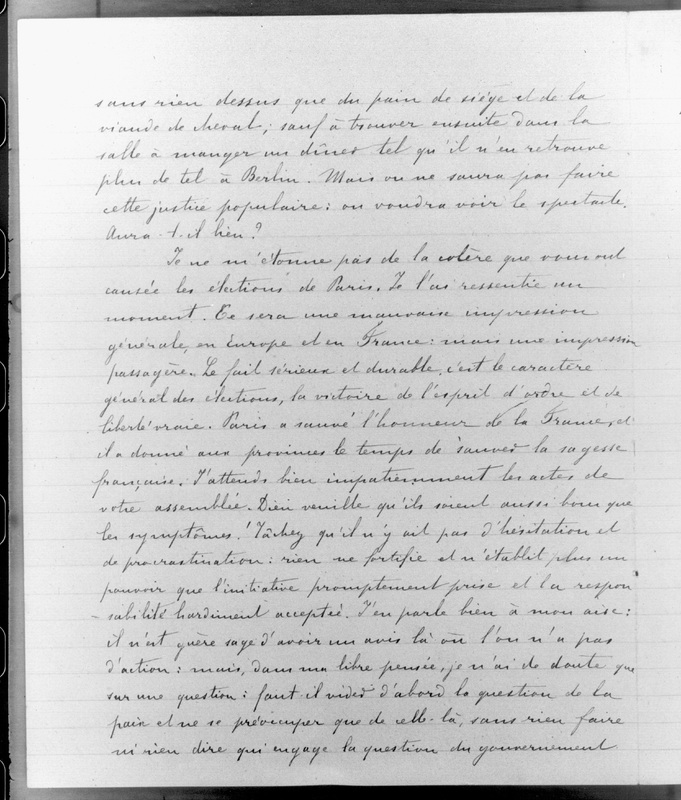 sans rien dessus que du pain de siége et de la
viande de cheval; sauf à trouver ensuite dans la
salle à manger un dîner tel qu'il n'en retrouve
plus de tel à Berlin. Mais on ne saura pas faire
cette justice populaire: on voudra voir le spectacle.
Aura-t-il lieu?
Je ne m'étonne pas de la colère que vous ont
causée les élections de Paris. Je l'ai ressentie un
moment. Ce sera une mauvaise impression
générale, en Europe et en France: mais une impression
passagère. Le fait sérieux et durable, c'est le caractère
général des élections, la victoire de l'esprit d'ordre et de
liberté vraie. Paris a sauvé l'honneur de la France, et
il a donné aux provinces le temps de sauver la sagesse
française. J'attends bien impatiemment les actes de
votre assemblée. Dieu veuille qu'ils soient aussi bons que
les symptômes! Tâchez qu'il n'y ait pas d'hésitation et
de procrastination: rien ne fortifie et n'établit plus un
pouvoir que l'initiative promptement prise et la respon
-sabilité hardiment acceptée. J'en parle bien à mon aise:
il n'est guère sage d'avoir un avis là où l'on n'a pas
d'action: mais, dans ma libre pensée, je n'ai de doute que
sur une question: faut-il vider d'abord la question de la
paix et ne se préoccuper que de celle-là, sans rien faire
ni rien dire qui engage la question du gouvernement